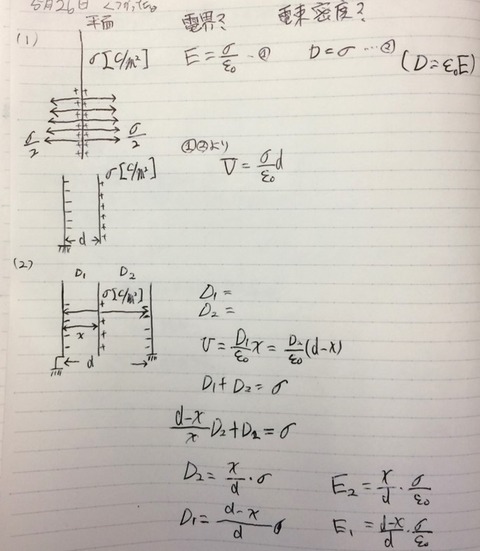 5月26日
平面 電界? 電束密度?
(1) σ[C/m²] E = σ/ε₀ …① D = σ …② (D = ε₀E)
σ/2 σ/2
①②より
σ[C/m²] V = σ/ε₀ d
d
(2) D₁ D₂
σ[C/m²] D₁ =
D₂ =
x V = D₁/ε₀ x = D₂/ε₀ (d-x)
d
D₁+D₂ = σ
d-x/x D₂+D₂ = σ
D₂ = x/d · σ E₂ = x/d · σ/ε₀
D₁ = d-x/d σ E₁ = d-x/d · σ/ε₀